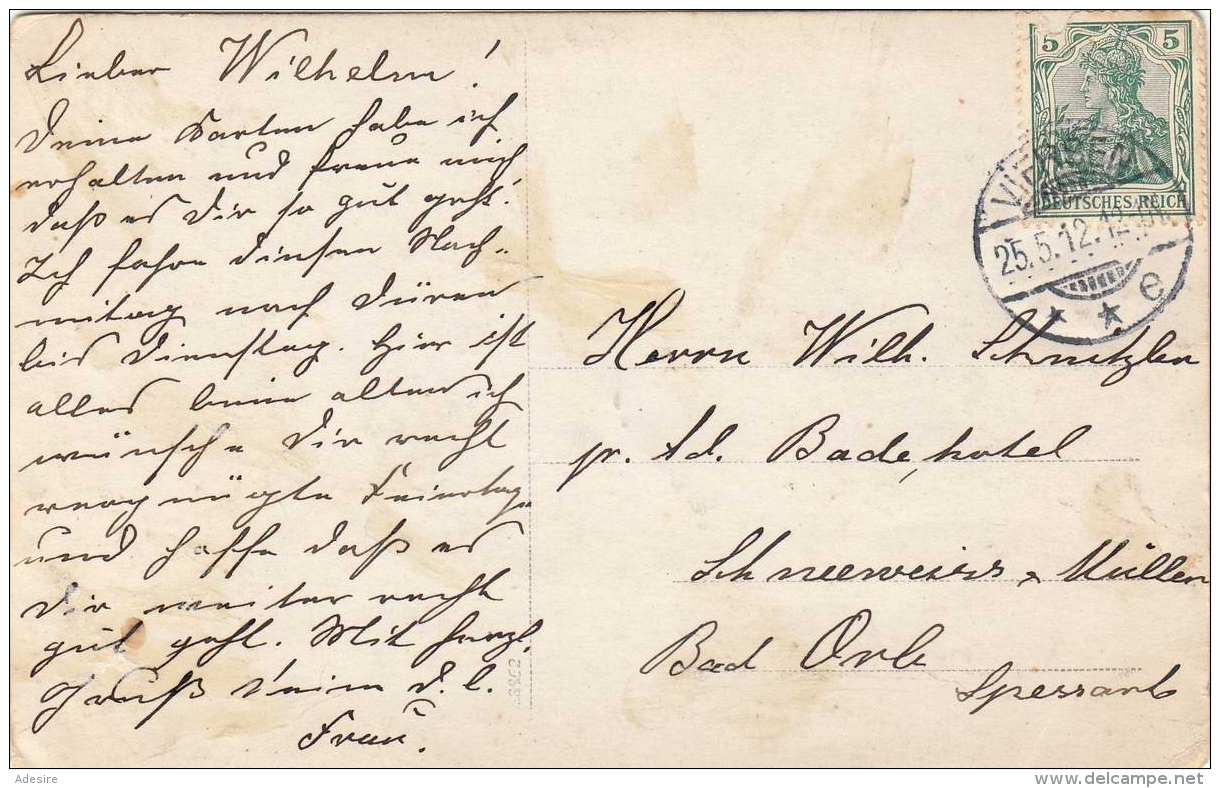 Lieber Wilhelm!
Deine Karten habe ich
erhalten und freue mich
daß es Dir so gut geht.
Ich fahre diesen Nach-
mittag nach Düren
bis Dienstag. Hier ist
alles beim alten ich
wünsche Dir recht
vergnügte Feiertage
und hoffe daß es
Dir weiter recht
gut geht. Mit herzl.
Gruß Deine d. l.
Frau.
5 5
DEUTSCHES REICH
VIERSEN
25.5.12. 12-1N.
* * e
Herrn Wilh. Schnitzler
pr. Ad. Badehotel
Schneeweiss & Müller
Bad Orb
Spessart
Adesire
delcampe.net